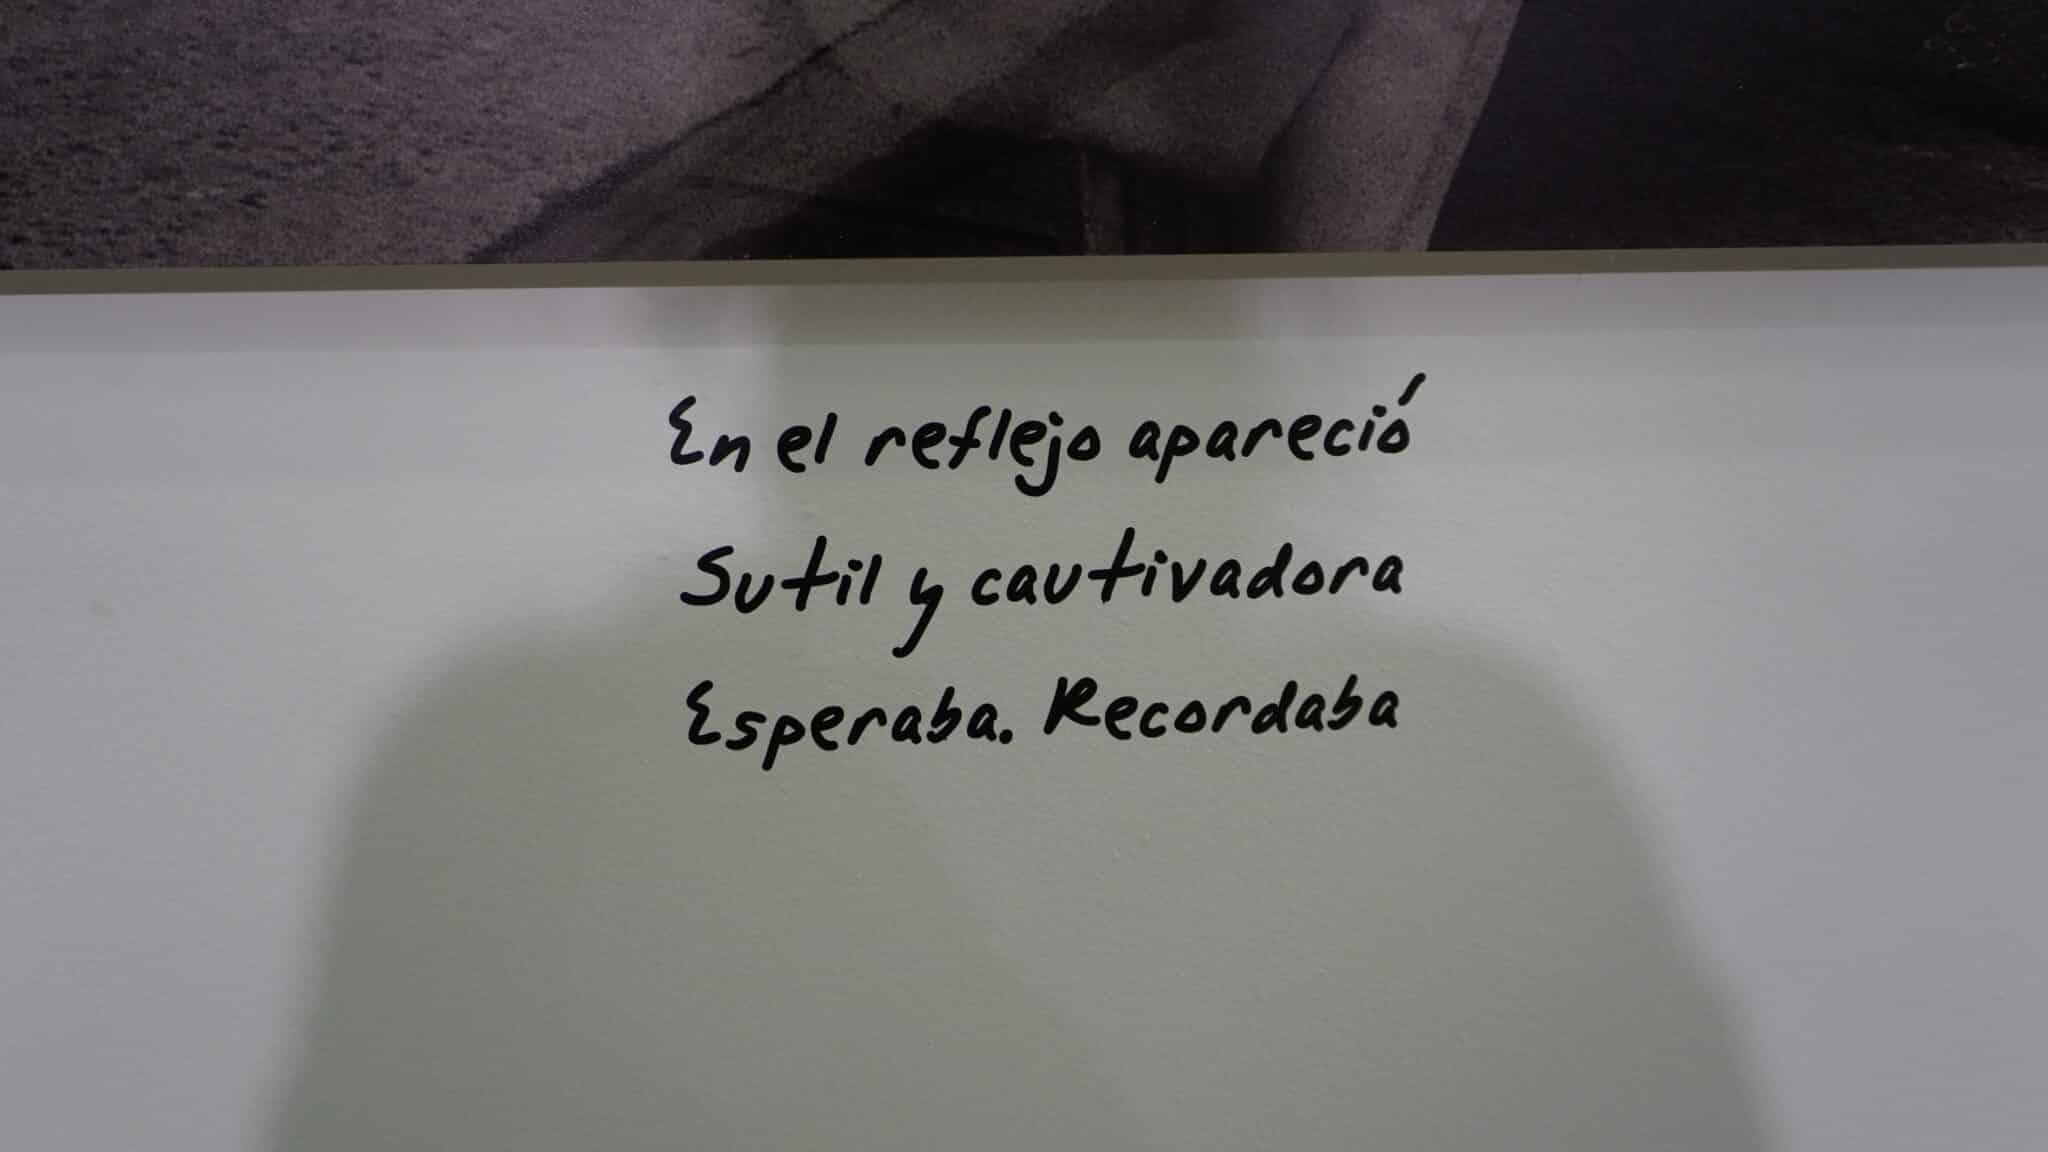 En el reflejo apareció
Sutil y cautivadora
Esperaba. Recordaba